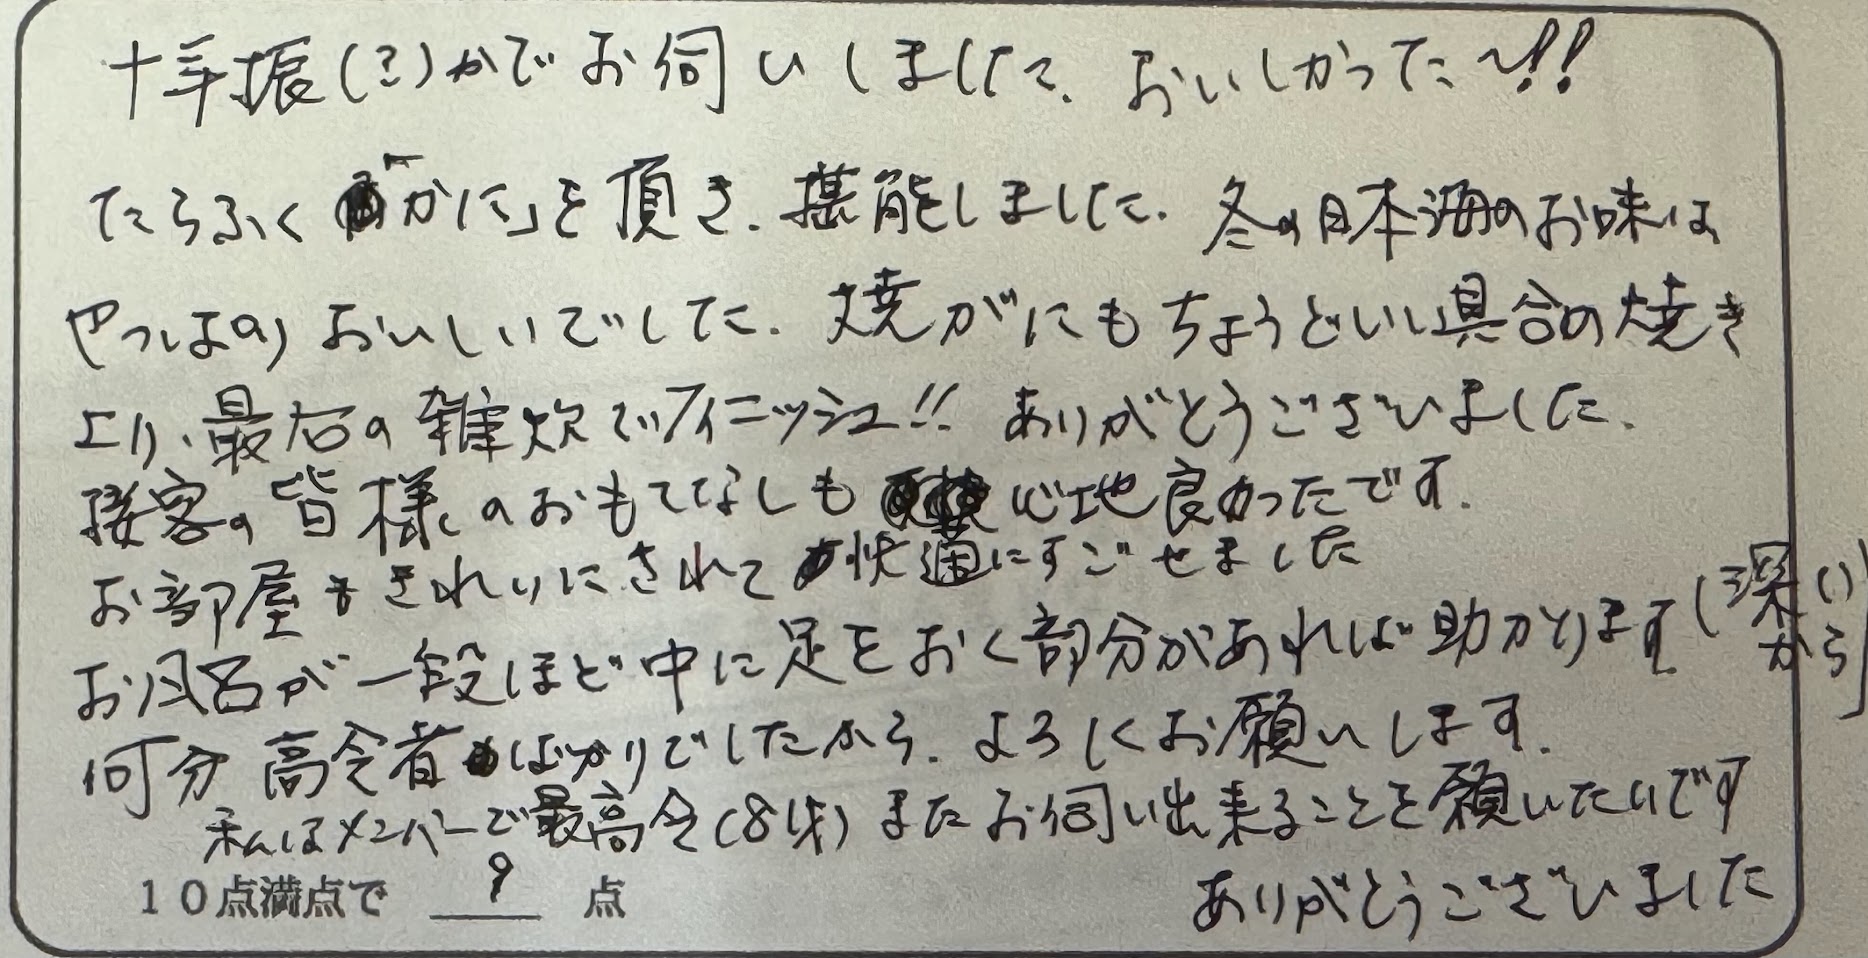 十年振(?)かでお伺いしました、おいしかった〜!!
たらふく「かに」を頂き、堪能しました。冬の日本海のお味は
やっぱり おいしいでした。焼がにもちょうどいい具合の焼き
上り、最后の雑炊でフィニッシュ!! ありがとうございました。
接客の皆様のおもてなしも 心地良かったです。
お部屋もきれいにされて快適にすごせました
お風呂が一段ほど中に足をおく部分があれば助かります(深いから)
何分高令者ばかりでしたから、よろしくお願いします。
私はメンバーで最高令(81才)またお伺い出来ることを願いたいです
10点満点で 9 点
ありがとうございました